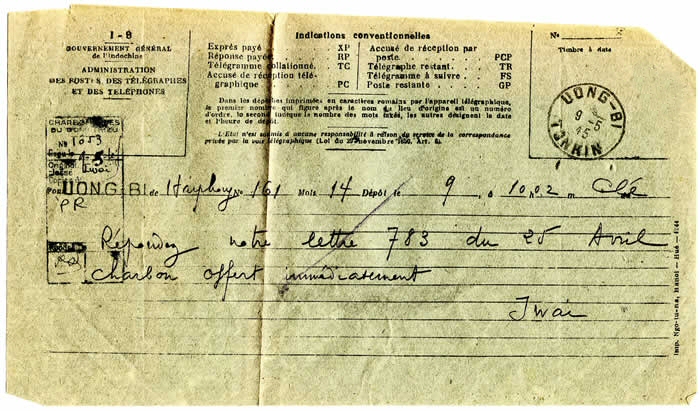 I-8
GOUVERNEMENT GÉNÉRAL
de l'Indochine
ADMINISTRATION
DES POSTES, DES TÉLÉGRAPHES
ET DES TÉLÉPHONES
Indications conventionnelles
Exprès payé XP
Réponse payée RP
Télégramme collationné. TC
Accusé de réception télé-
graphique PC
Accusé de réception par
poste PCP
Télégraphe restant. TR
Télégramme à suivre FS
Poste restante GP
Dans les dépêches imprimées en caractères romains par l'appareil télégraphique,
le premier nombre qui figure après le nom du lieu d'origine est un numéro
d'ordre, le second indique le nombre des mots taxés, les autres désignent la date
et l'heure de dépôt.
L'État n'est soumis à aucune responsabilité à raison du service de la correspondance
privée par la voie télégraphique (Loi du novembre 1850, Art. 6).
No
Timbre à date
UONG-BI
9 - 5
45
TONKIN
CHARBONNAGES
No 1053
Iwai
UONG-BI de Haiphong No 161 Mots 14 Dépôt le 9 à 10h02 m Clé
PR
Répondez notre lettre 783 du 25 Avril
charbon offert immédiatement
Iwai
Imp. Ngo-tu-ha, Hanoi — Hué — 4144